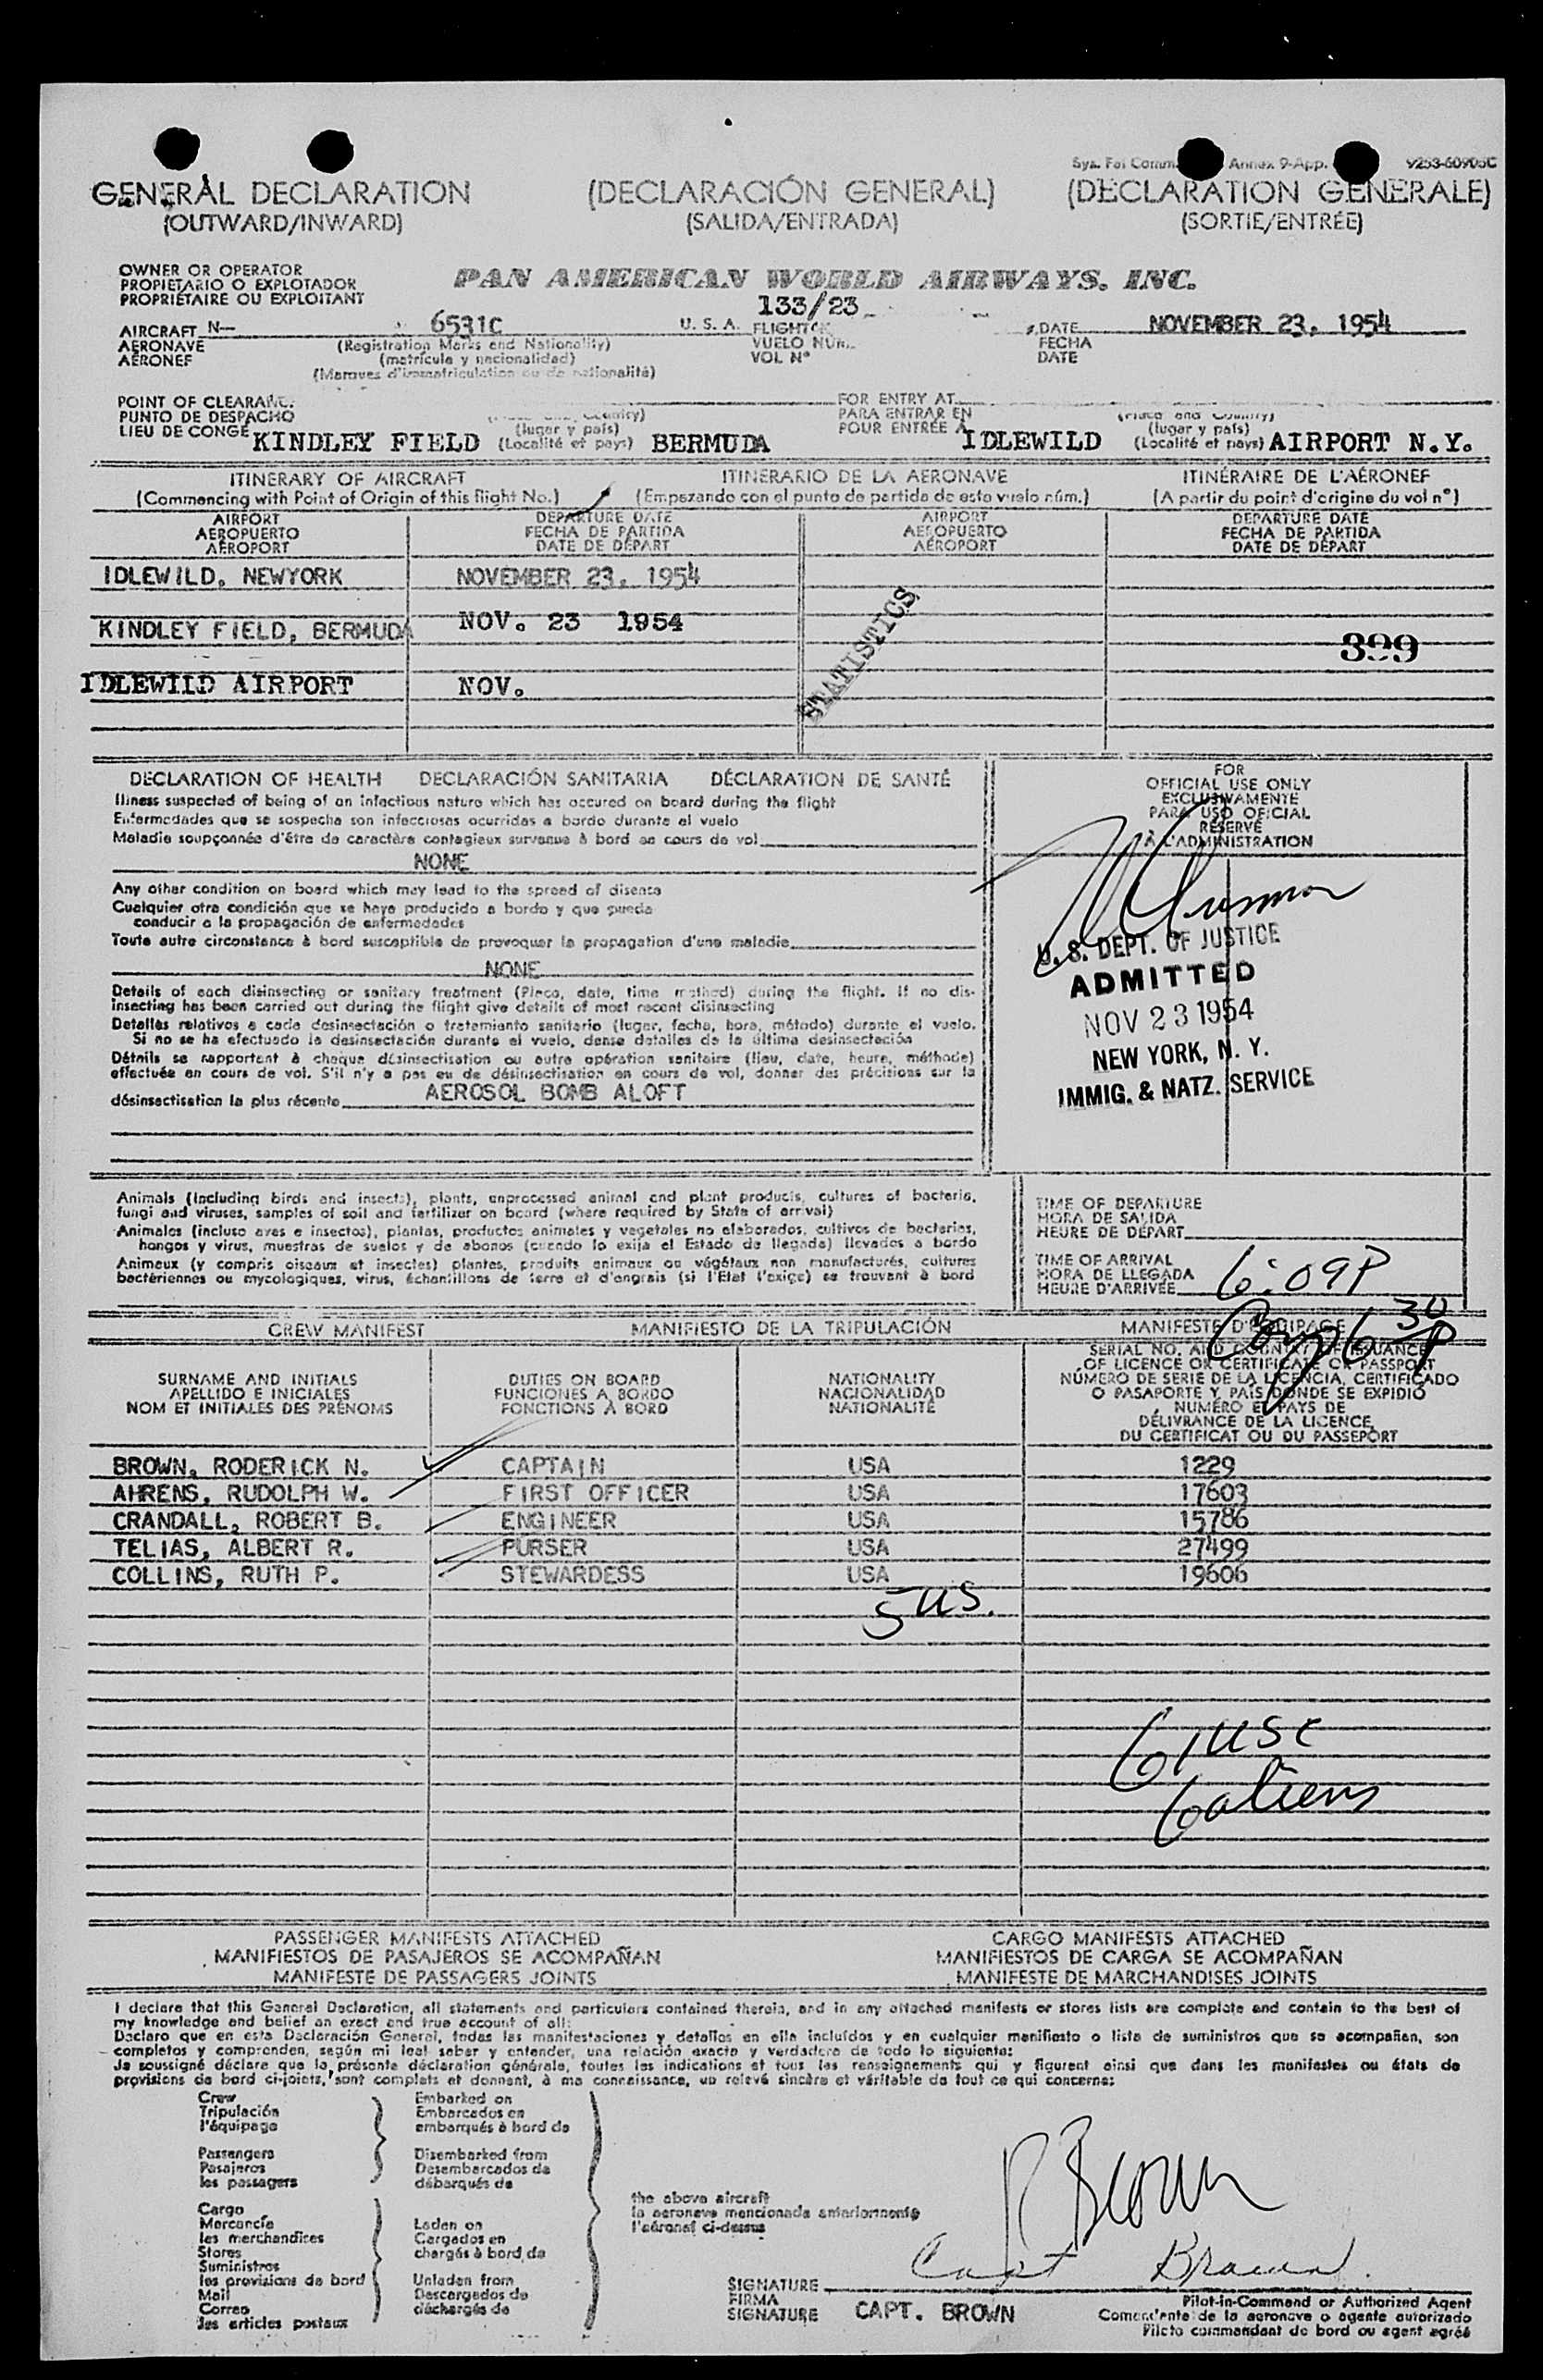 Annex 9-App.
GENERAL DECLARATION (DECLARACIÓN GENERAL) (DÉCLARATION GÉNÉRALE)
(OUTWARD/INWARD) (SALIDA/ENTRADA) (SORTIE/ENTRÉE)
OWNER OR OPERATOR
PROPIETARIO O EXPLOTADOR
PROPRIÉTAIRE OU EXPLOITANT
PAN AMERICAN WORLD AIRWAYS, INC.
133/23
AIRCRAFT N— 6531C U. S. A. FLIGHT DATE NOVEMBER 23, 1954
AERONAVE (Registration Marks and Nationality) VUELO NÚM. FECHA
AÉRONEF (matrícula y nacionalidad) VOL Nº DATE
(Marques d'immatriculation ou de nationalité)
POINT OF CLEARANCE FOR ENTRY AT
PUNTO DE DESPACHO PARA ENTRAR EN
LIEU DE CONGÉ POUR ENTRÉE A
(lugar y país) (lugar y país)
KINDLEY FIELD (Localité et pays) BERMUDA IDLEWILD (Localité et pays) AIRPORT N.Y.
ITINERARY OF AIRCRAFT ITINERARIO DE LA AERONAVE ITINÉRAIRE DE L'AÉRONEF
(Commencing with Point of Origin of this flight No.) (Empezando con el punto de partida de este vuelo núm.) (A partir du point d'origine du vol nº)
AIRPORT DEPARTURE DATE AIRPORT DEPARTURE DATE
AEROPUERTO FECHA DE PARTIDA AEROPUERTO FECHA DE PARTIDA
AÉROPORT DATE DE DÉPART AÉROPORT DATE DE DÉPART
IDLEWILD, NEWYORK NOVEMBER 23, 1954
KINDLEY FIELD, BERMUDA NOV. 23 1954
STATISTICS
399
IDLEWILD AIRPORT NOV.
DECLARATION OF HEALTH DECLARACIÓN SANITARIA DÉCLARATION DE SANTÉ
Illness suspected of being of an infectious nature which has occured on board during the flight
Enfermedades que se sospecha son infecciosas ocurridas a bordo durante el vuelo
Maladie soupçonnée d'être de caractère contagieux survenue à bord en cours de vol
NONE
Any other condition on board which may lead to the spread of disease
Cualquier otra condición que se haya producido a bordo y que pueda
conducir a la propagación de enfermedades
Toute autre circonstance à bord susceptible de provoquer la propagation d'une maladie
NONE
Details of each disinsecting or sanitary treatment (Place, date, time method) during the flight. If no dis-
insecting has been carried out during the flight give details of most recent disinsecting
Detalles relativos a cada desinsectación o tratamiento sanitario (lugar, fecha, hora, método) durante el vuelo.
Si no se ha efectuado la desinsectación durante el vuelo, dense detalles de la última desinsectación
Détails se rapportant à chaque désinsectisation ou autre opération sanitaire (lieu, date, heure, méthode)
effectuée en cours de vol. S'il n'y a pas eu de désinsectisation en cours de vol, donner des précisions sur la
désinsectisation la plus récente AEROSOL BOMB ALOFT
FOR
OFFICIAL USE ONLY
EXCLUSIVAMENTE
PARA USO OFICIAL
RÉSERVÉ
À L'ADMINISTRATION
U. S. DEPT. OF JUSTICE
ADMITTED
NOV 23 1954
NEW YORK, N. Y.
IMMIG. & NATZ. SERVICE
Animals (including birds and insects), plants, unprocessed animal and plant products, cultures of bacteria,
fungi and viruses, samples of soil and fertilizer on board (where required by State of arrival)
Animales (incluso aves e insectos), plantas, productos animales y vegetales no elaborados, cultivos de bacterias,
hongos y virus, muestras de suelos y de abonos (cuando lo exija el Estado de llegada) llevados a bordo
Animaux (y compris oiseaux et insectes) plantes, produits animaux ou végétaux non manufacturés, cultures
bactériennes ou mycologiques, virus, échantillons de terre et d'engrais (si l'Etat l'exige) se trouvant à bord
TIME OF DEPARTURE
HORA DE SALIDA
HEURE DE DÉPART
TIME OF ARRIVAL
HORA DE LLEGADA
HEURE D'ARRIVÉE 6:09P
6 30 P
CREW MANIFEST MANIFIESTO DE LA TRIPULACIÓN MANIFESTE D'ÉQUIPAGE
SURNAME AND INITIALS
APELLIDO E INICIALES
NOM ET INITIALES DES PRÉNOMS
DUTIES ON BOARD
FUNCIONES A BORDO
FONCTIONS À BORD
NATIONALITY
NACIONALIDAD
NATIONALITÉ
SERIAL NO. AND COUNTRY OF ISSUANCE
OF LICENCE OR CERTIFICATE OR PASSPORT
NÚMERO DE SERIE DE LA LICENCIA, CERTIFICADO
O PASAPORTE Y PAÍS DONDE SE EXPIDIÓ
NUMÉRO ET PAYS DE
DÉLIVRANCE DE LA LICENCE,
DU CERTIFICAT OU DU PASSEPORT
BROWN, RODERICK N. CAPTAIN USA 1229
AHRENS, RUDOLPH W. FIRST OFFICER USA 17603
CRANDALL, ROBERT B. ENGINEER USA 15786
TELIAS, ALBERT R. PURSER USA 27499
COLLINS, RUTH P. STEWARDESS USA 19606
5 US.
61 USC
6 aliens
PASSENGER MANIFESTS ATTACHED CARGO MANIFESTS ATTACHED
MANIFIESTOS DE PASAJEROS SE ACOMPAÑAN MANIFIESTOS DE CARGA SE ACOMPAÑAN
MANIFESTE DE PASSAGERS JOINTS MANIFESTE DE MARCHANDISES JOINTS
I declare that this General Declaration, all statements and particulars contained therein, and in any attached manifests or stores lists are complete and contain to the best of
my knowledge and belief an exact and true account of all:
Declaro que en esta Declaración General, todas las manifestaciones y detalles en ella incluídos y en cualquier manifiesto o lista de suministros que se acompañan, son
completos y comprenden, según mi leal saber y entender, una relación exacta y verdadera de todo lo siguiente:
Je soussigné déclare que la présente déclaration générale, toutes les indications et tous les renseignements qui y figurent ainsi que dans les manifestes ou états de
provisions de bord ci-joints, sont complets et donnent, à ma connaissance, un relevé sincère et véritable de tout ce qui concerne:
Crew Embarked on
Tripulación Embarcados en
l'équipage embarqués à bord de
Passengers Disembarked from
Pasajeros Desembarcados de
les passagers débarqués de
the above aircraft
la aeronave mencionada anteriormente
l'aéronef ci-dessus
Cargo
Mercancía Laden on
les marchandises Cargados en
Stores chargés à bord de
Suministros
les provisions de bord Unladen from
Mail Descargados de
Correo déchargés de
les articles postaux
R Brown
Capt Brown
SIGNATURE
FIRMA
SIGNATURE CAPT. BROWN
Pilot-in-Command or Authorized Agent
Comandante de la aeronave o agente autorizado
Pilote commandant de bord ou agent agréé